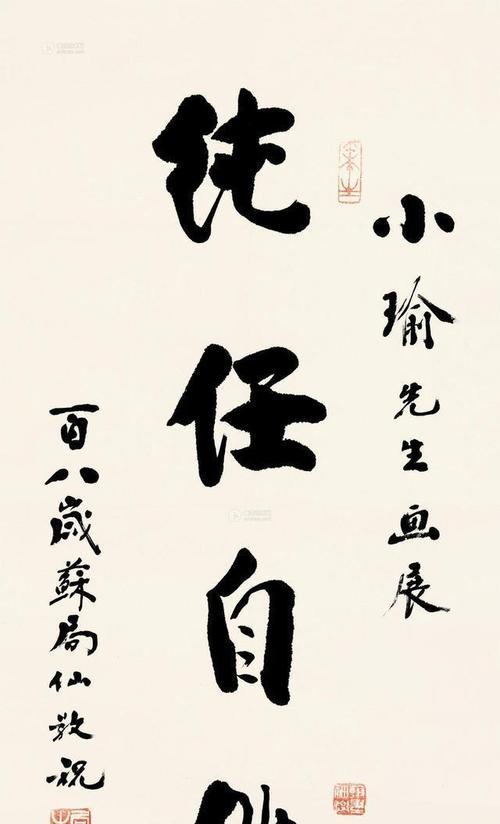 小瑜先生画展
纯任自
百八岁蘇局仙敬祝